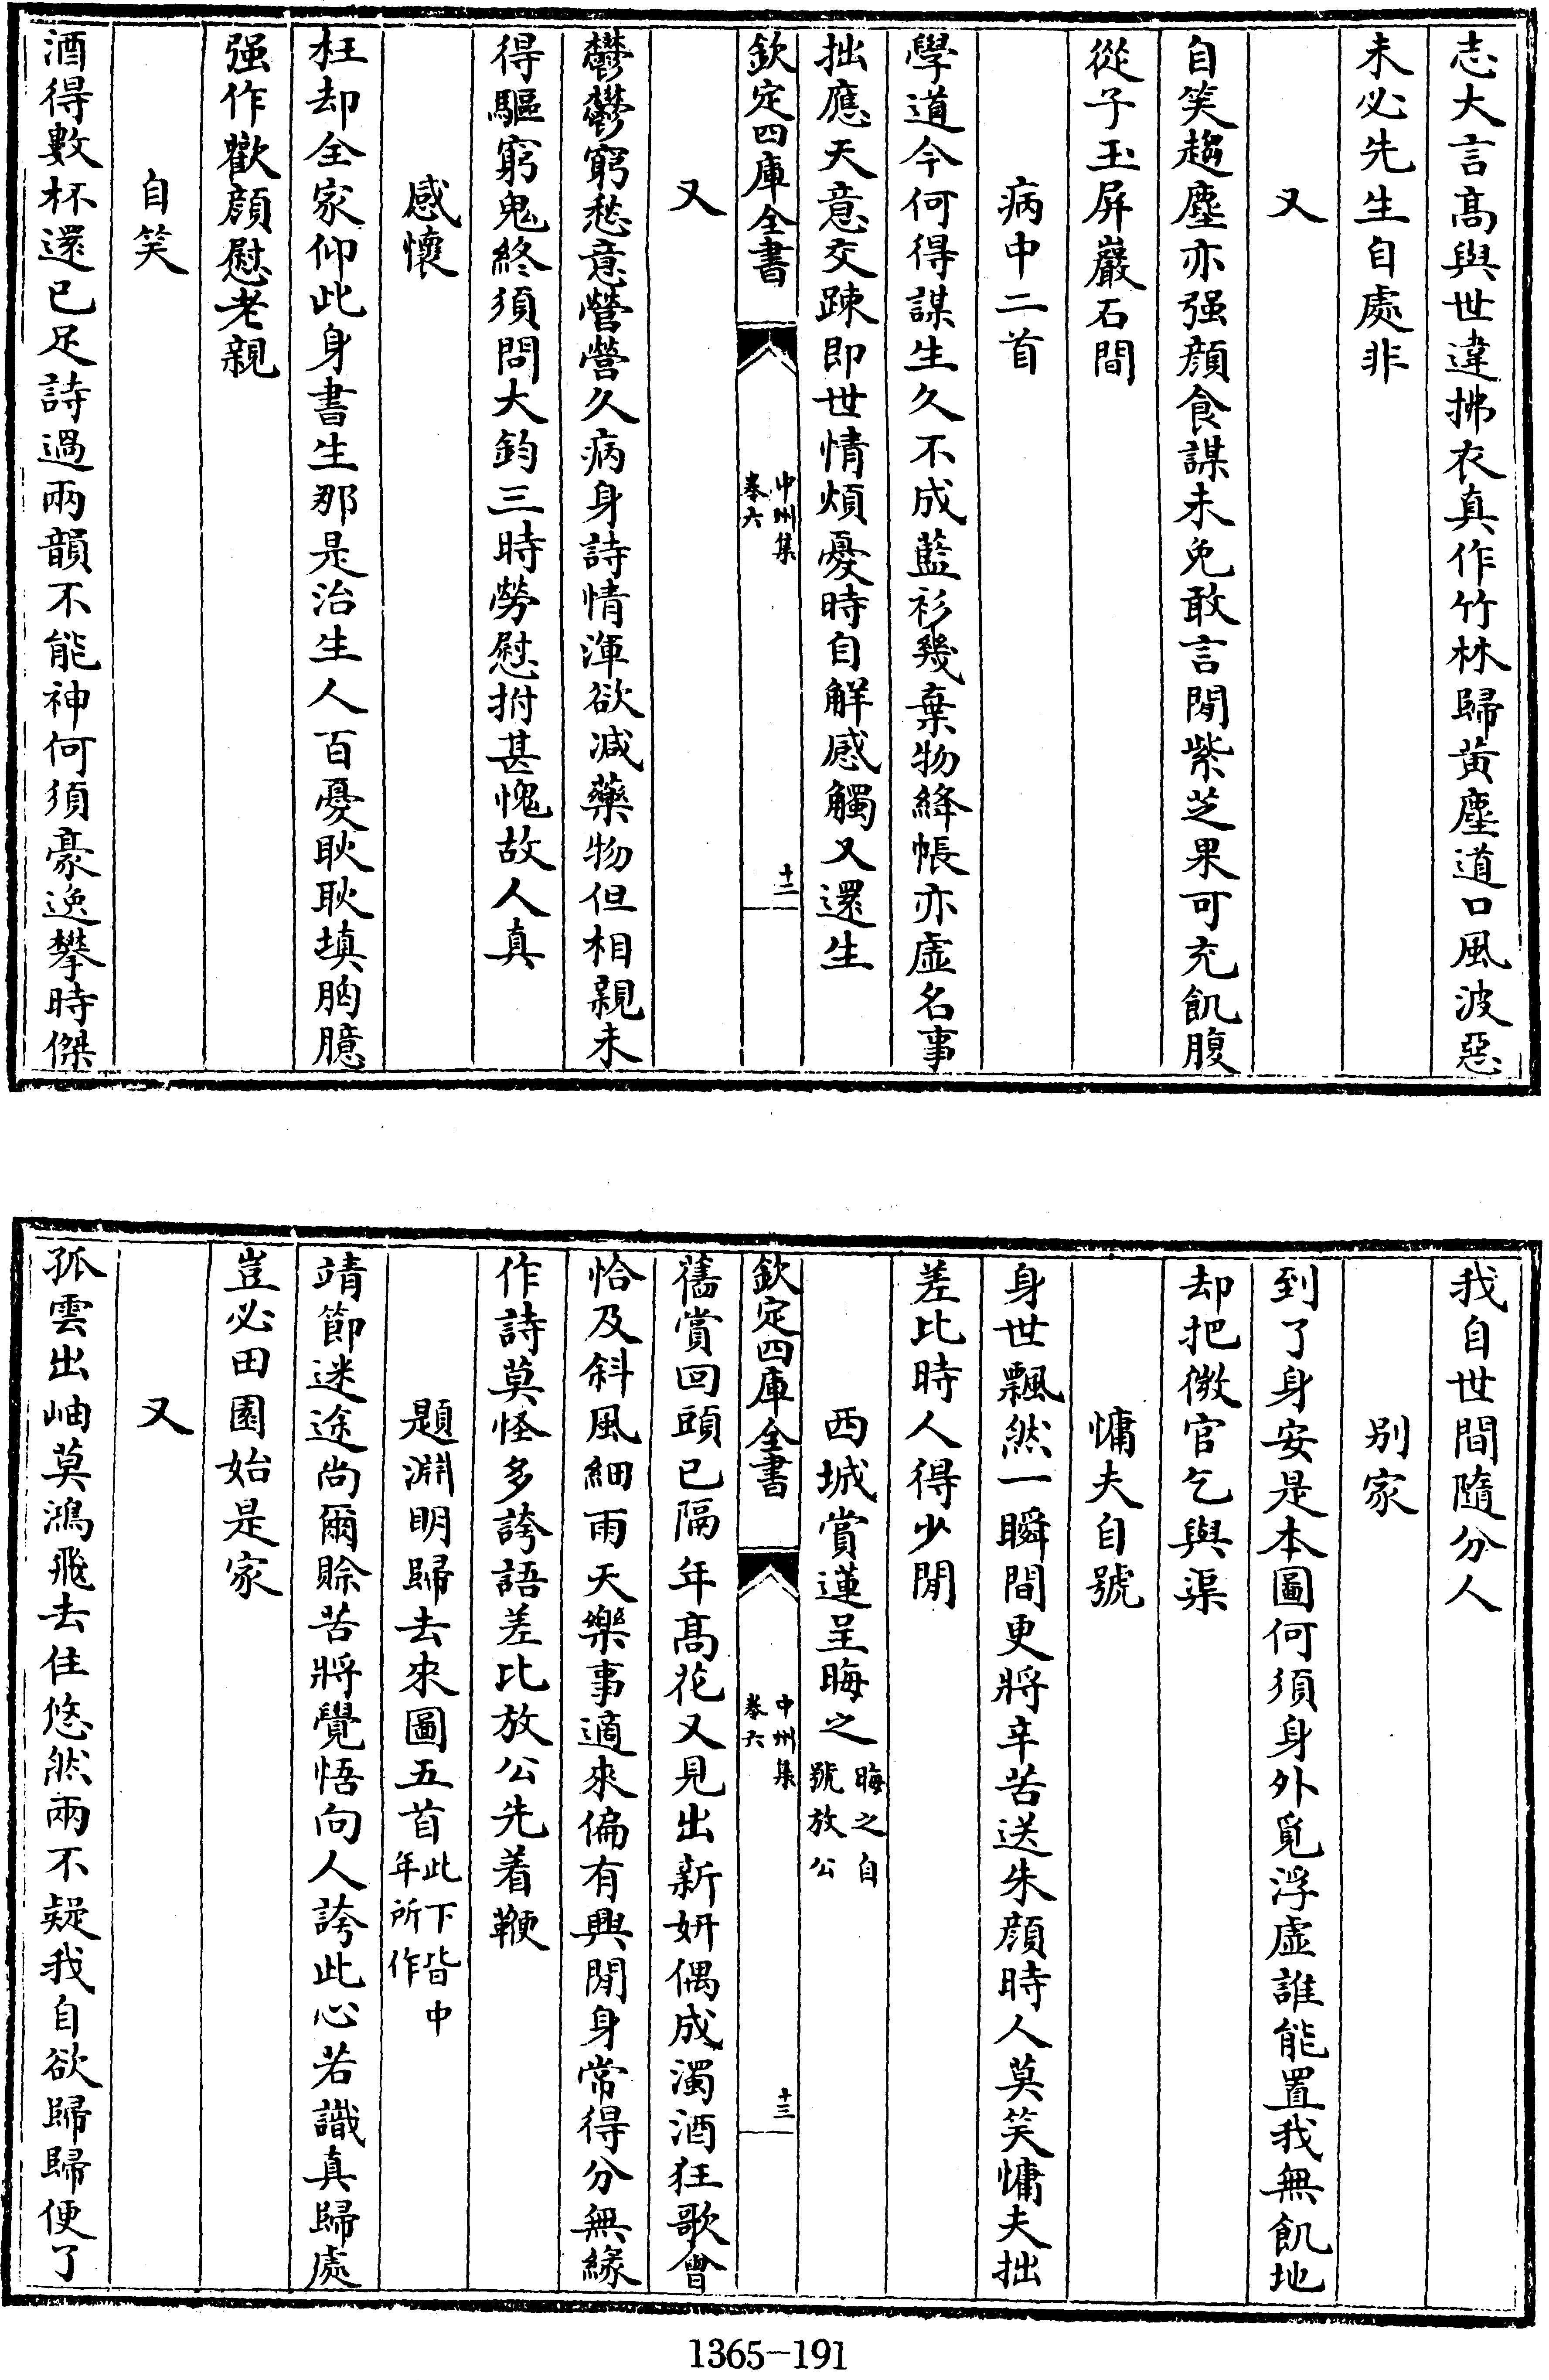 志大言髙與世違拂衣真作竹林歸黄塵道口風波惡
未必先生自處非
又
自笑趨塵亦强顔食謀未免敢言閒紫芝果可充飢腹
從子玉屏巖石間
病中二首
學道今何得謀生久不成藍衫幾棄物絳帳亦虚名事
拙應天意交踈即世情煩憂時自解感觸又還生
欽定四庫全書
中州集
卷六
十二
又
鬱鬱窮愁意營營久病身詩情渾欲减藥物但相親未
得驅窮鬼終須問大鈞三時勞慰拊甚愧故人真
感懷
枉却全家仰此身書生那是治生人百憂耿耿填胸臆
强作歡顔慰老親
自笑
酒得數杯還已足詩過兩韻不能神何須豪逸攀時傑
我自世間隨分人
别家
到了身安是本圖何須身外覓浮虚誰能置我無飢地
却把微官乞與渠
慵夫自號
身世飄然一瞬間更將辛苦送朱顔時人莫笑慵夫拙
差比時人得少閒
西城賞蓮呈晦之
晦之自
號放公
欽定四庫全書
中州集
卷六
十三
舊賞回頭已隔年髙花又見出新妍偶成濁酒狂歌會
恰及斜風細雨天樂事適來偏有興閒身常得分無緣
作詩莫怪多誇語差比放公先着鞭
題淵明歸去來圖五首
此下皆中
年所作
靖節迷途尚爾賒苦將覺悟向人誇此心若識真歸處
豈必田園始是家
又
孤雲出岫莫鴻飛去住悠然兩不疑我自欲歸歸便了
1365-191